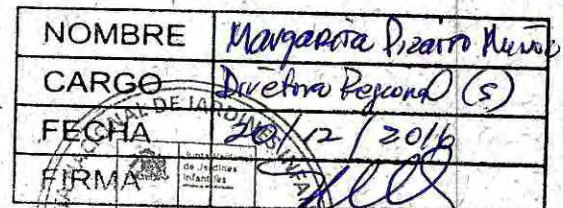 NOMBRE Margarita Pizarro Muñoz
CARGO Directora Regional (S)
FECHA 20/12/2016
FIRMA
NACIONAL DE JARDINES INFA
Junta Nacional
de Jardines
Infantiles